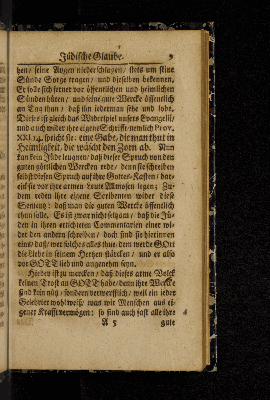 Jüdische Glaube. 9
hen/ seine Augen niederschlagen/ stets um seine
Sünde Sorge tragen/ und dieselben bekennen,
Er solle sich ferner vor öffentlichen und heimlichen
Sünden hüten/ und seine gute Wercke öffentlich
an Tag thun/ daß ihn jederman sehe und lobe.
Dieses ist gleich das Widerspiel unsers Evangelii/
und auch wider ihre eigene Schrifft: nemlich Prov.
XXI.14. spricht sie: eine Gabe, die man thut in
Heimligkeit, die wäscht den Zorn ab. Nun
kan kein Jüde leugnen/ daß dieser Spruch von den
guten göttlichen Wercken rede/ denn sie schreiben
selbst diesen Spruch auf ihre Gottes-Kasten/ dar-
ein sie vor ihre armen Leute Allmosen legen; Zu-
dem reden ihre eigene Scribenten wider diese
Sentenz: daß man die guten Wercke öffentlich
thun solle. Es ist zwar nicht seltzam/ daß die Jü-
den in ihren erticheten Commentarien einer wi-
der den andern schreiben/ doch sind sie hierinnen
eins/ daß/ wer solches alles thue, dem werde GOtt
die Liebe in seinem Hertzen stärcken/ und er also
vor GOTT lieb und angenehm seyn.
Hierbey ist zu mercken/ daß dieses arme Volck
keinen Trost an GOTT habe/ denn ihre Wercke
sind kein nütz/ sondern verwerfflich/ weil ein jeder
Gelehrter wohl weiß, was wir Menschen aus ei-
gener Krafft vermögen: so sind auch fast alle ihre
A 5 gute